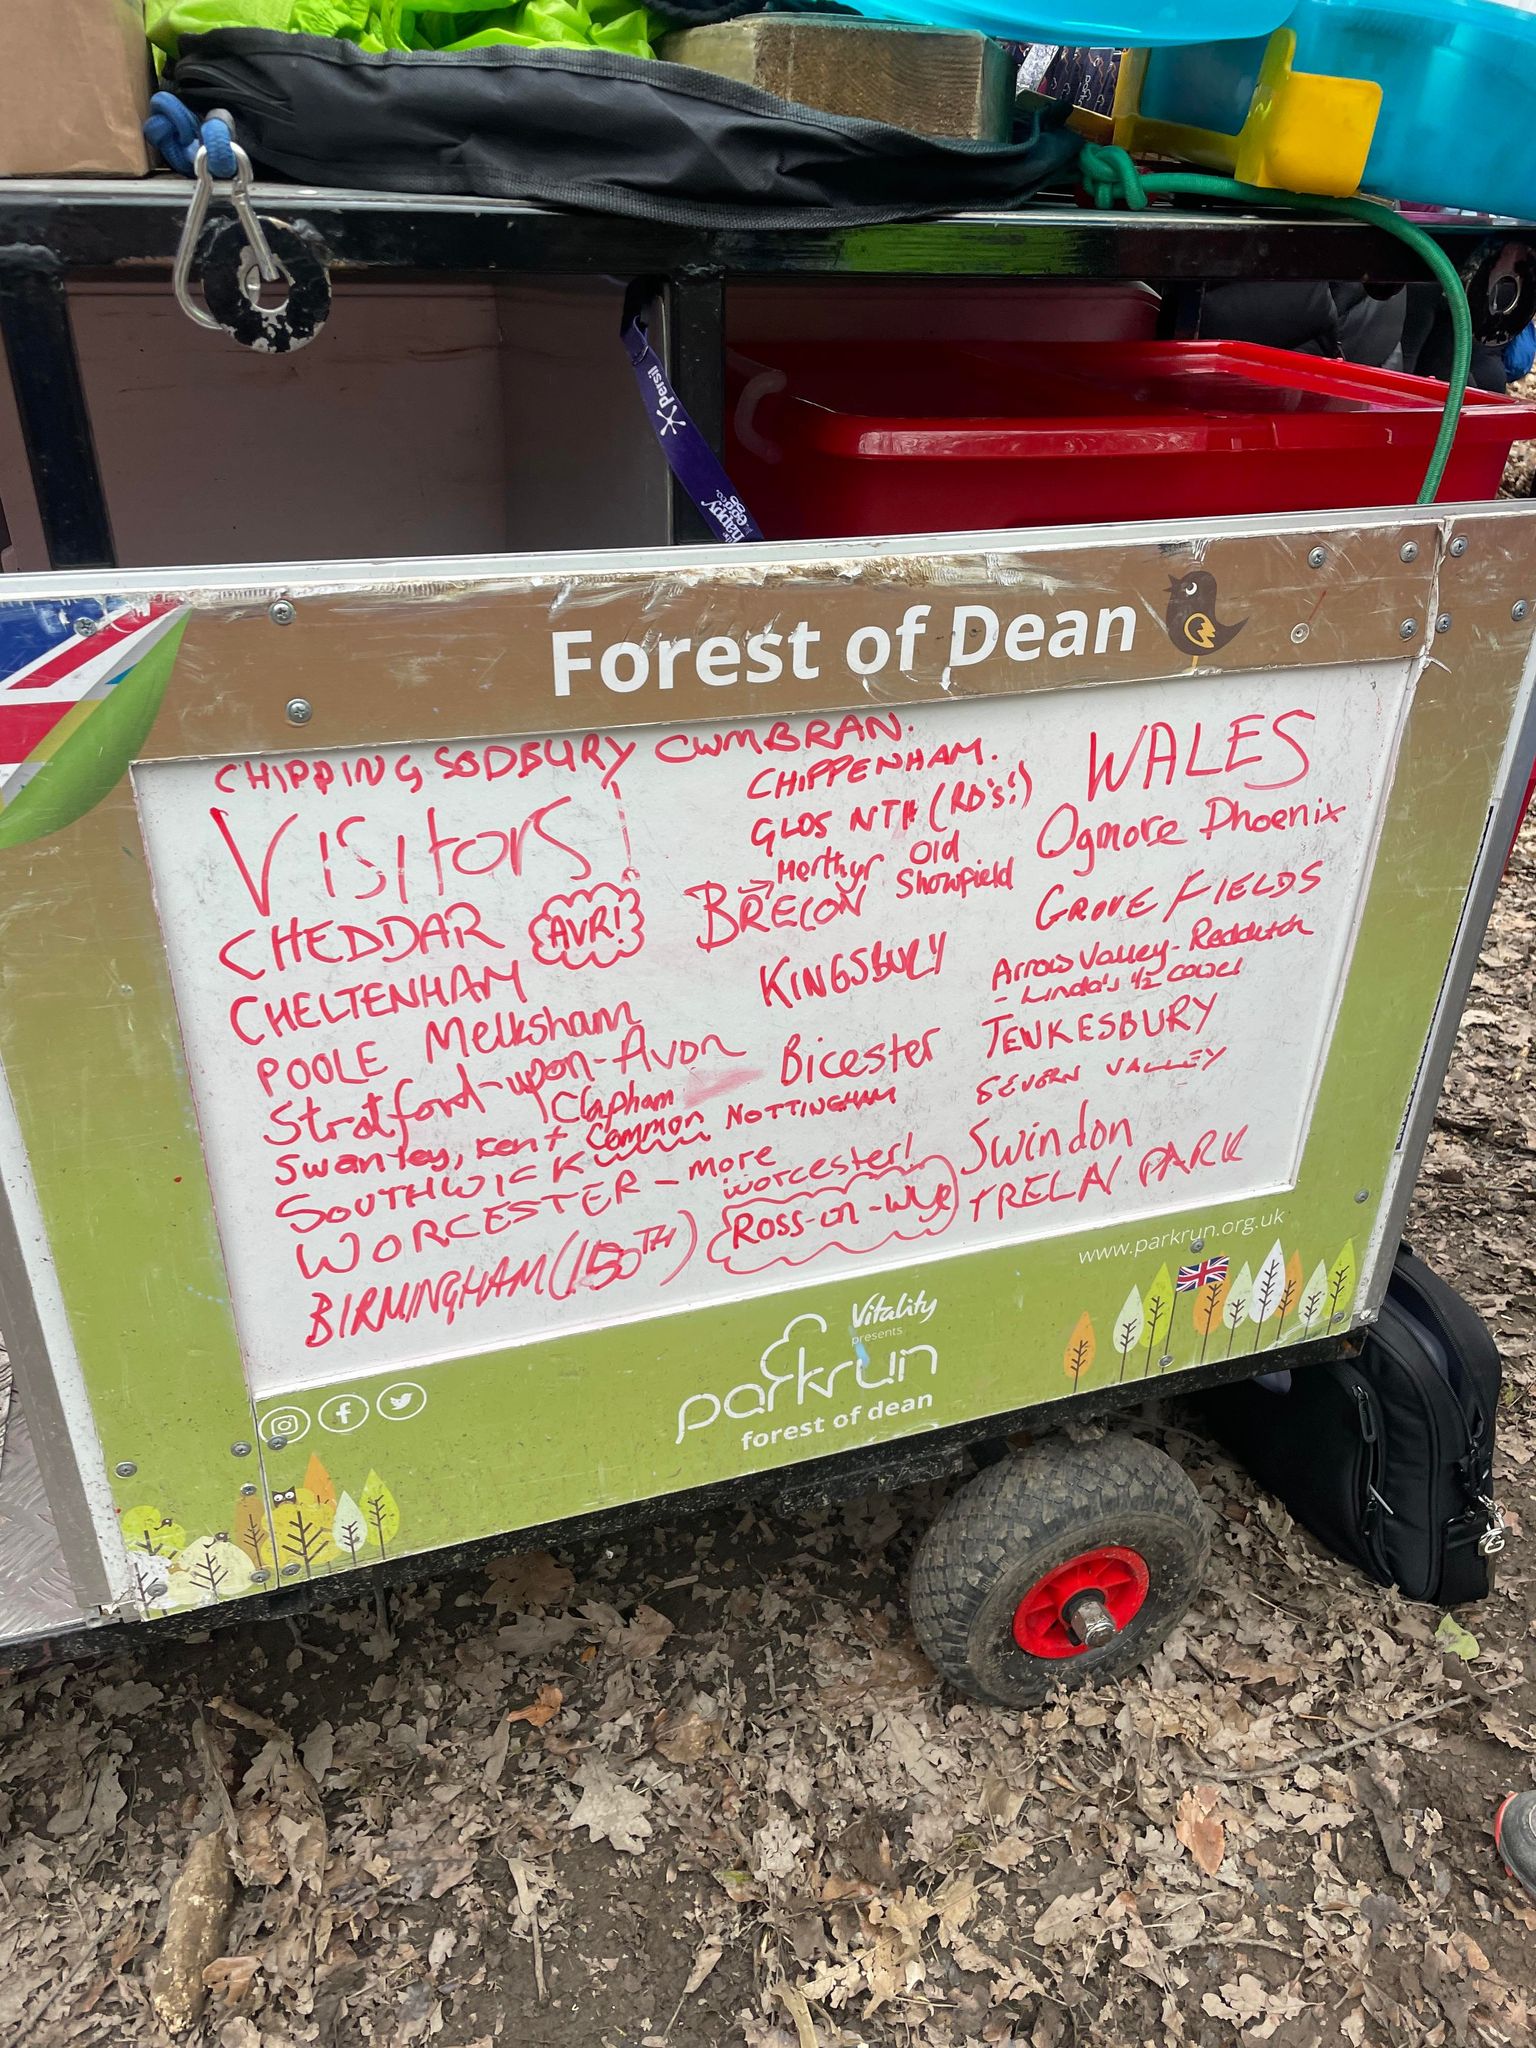 Persil
the happy egg co.
Forest of Dean
CHIPPING SODBURY CWMBRAN.
Visitors!
CHEDDAR AVR!
CHELTENHAM
POOLE Melksham
Stratford-upon-Avon
Swanley, Kent Clapham Common
SOUTHWICK NOTTINGHAM
WORCESTER - more worcester!
BIRMINGHAM (150TH) ROSS-on-Wye
CHIPPENHAM.
GLOS NTH (RD's!)
Merthyr Old Showfield
BRECON
KINGSBURY
Bicester
WALES
Ogmore Phoenix
GROVE FIELDS
Arrow Valley - Redditch
- Linda's ½ cowl
TEWKESBURY
SEVERN VALLEY
Swindon
TRELAI PARK
www.parkrun.org.uk
Vitality
presents
parkrun
forest of dean